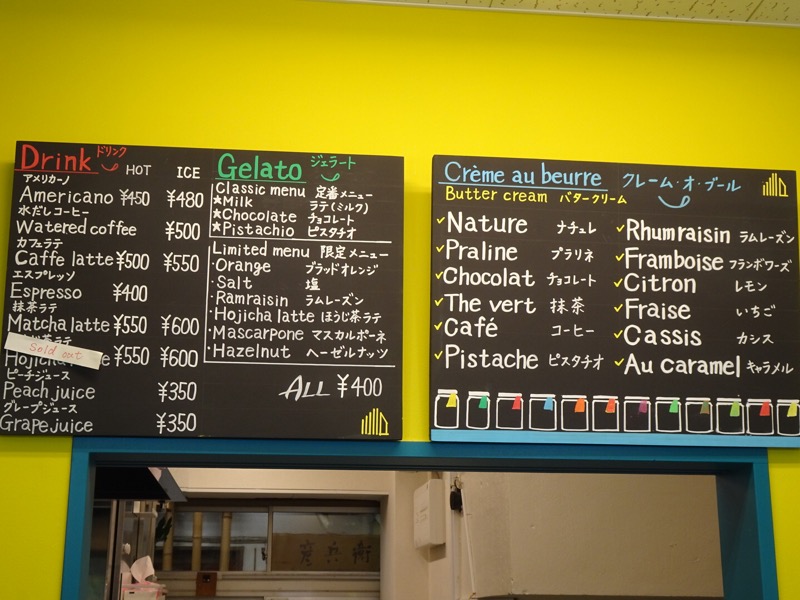 Drink ドリンク HOT ICE
アメリカーノ
Americano ¥450 ¥480
水だしコーヒー
Watered coffee ¥500
カフェラテ
Caffe latte ¥500 ¥550
エスプレッソ
Espresso ¥400
抹茶ラテ
Matcha latte ¥550 ¥600
Sold out
¥550 ¥600
ピーチジュース
Peach juice ¥350
グレープジュース
Grape juice ¥350
Gelato ジェラート
Classic menu 定番メニュー
★Milk ラテ(ミルク)
★Chocolate チョコレート
★Pistachio ピスタチオ
Limited menu 限定メニュー
・Orange ブラッドオレンジ
・Salt 塩
・Ramraisin ラムレーズン
・Hojicha latte ほうじ茶ラテ
・Mascarpone マスカルポーネ
・Hazelnut ヘーゼルナッツ
ALL ¥400
Crème au beurre クレーム・オ・ブール
Butter cream バタークリーム
✓Nature ナチュレ
✓Praline プラリネ
✓Chocolat チョコレート
✓The vert 抹茶
✓Café コーヒー
✓Pistache ピスタチオ
✓Rhum raisin ラムレーズン
✓Framboise フランボワーズ
✓Citron レモン
✓Fraise いちご
✓Cassis カシス
✓Au caramel キャラメル